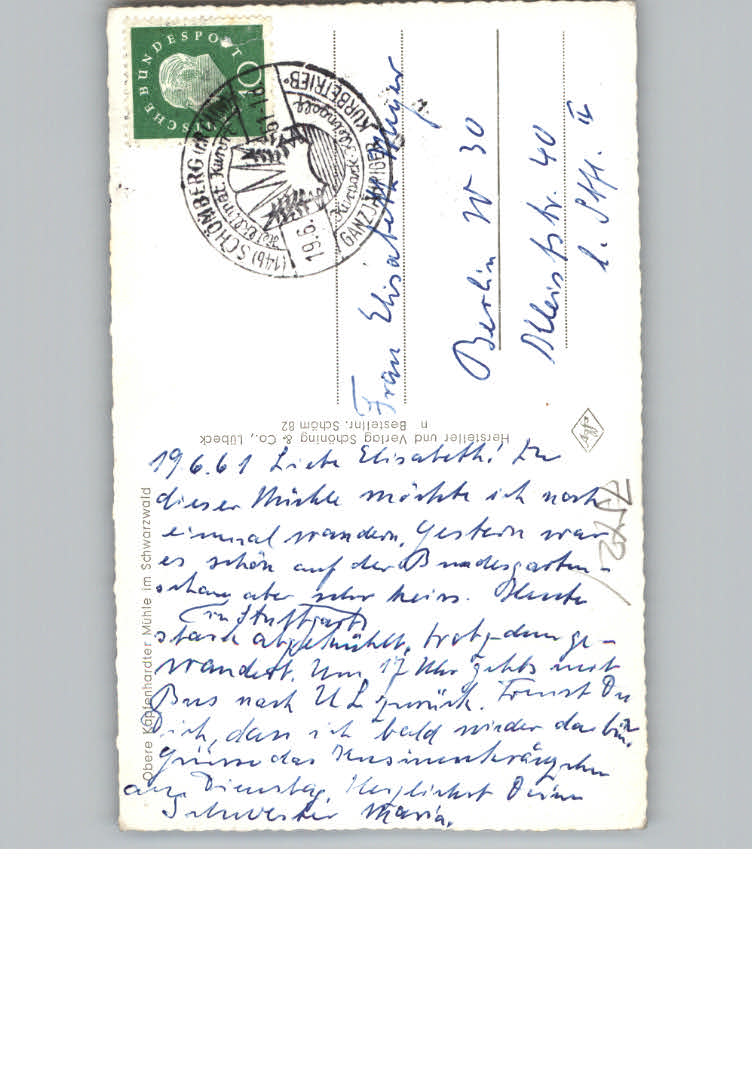 19.6.61 Liebe Elisabeth! Zu
dieser Mühle möchte ich noch
einmal wandern. Gestern war
es schön auf der Bundesgarten-
schau aber sehr heiss. Heute
in Stuttgart
stark abgekühlt, trotzdem ge-
wandert. Um 17 Uhr gehts mit
Bus nach UL zurück. Freust Du
Dich, dass ich bald wieder da bin.
Grüsse das Kusinenkränzchen
am Dienstag. Herzlichst Deine
Schwester Maria.
Frau Elisabeth Meyer
Berlin W 30
Kleiststr. 40
BUNDESPOST
10
(14b) SCHÖMBERG
19.6.61-18
GANZJÄHRIGER KURBETRIEB
Hersteller und Verlag Schöning & Co., Lübeck
n Bestellnr. Schöm 82
Agfa
Obere Kapfenhardter Mühle im Schwarzwald